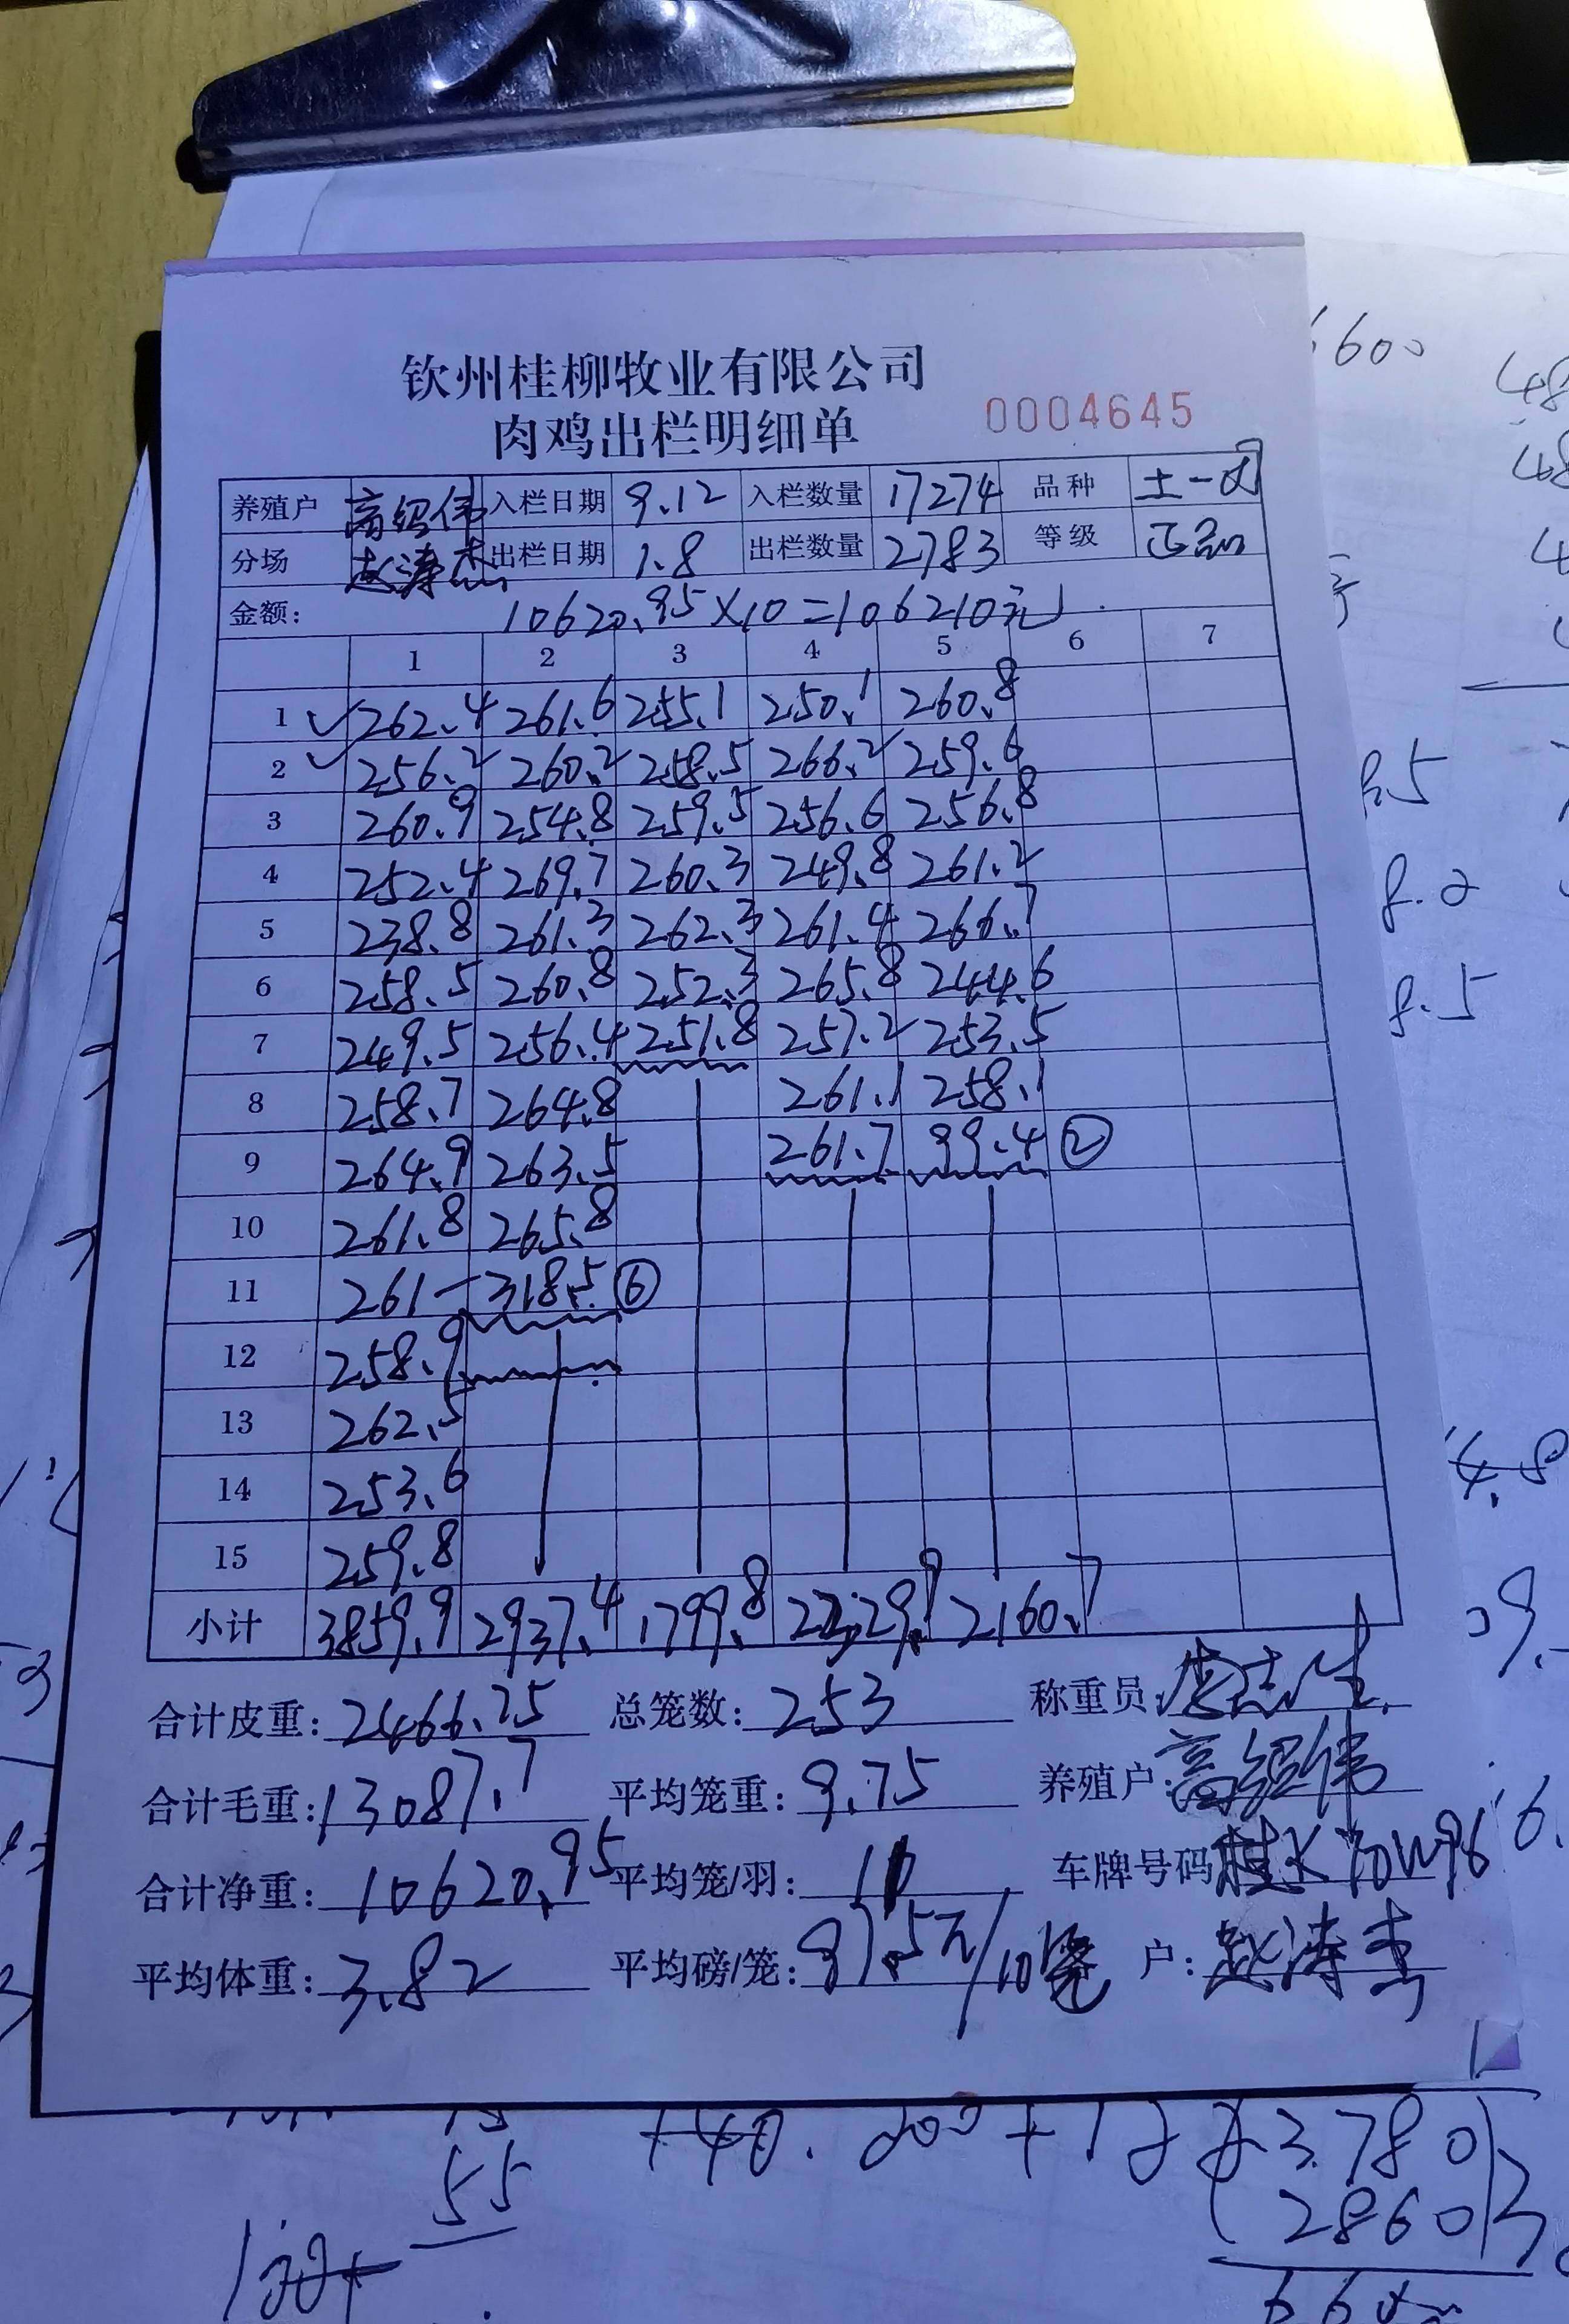 钦州桂柳牧业有限公司
肉鸡出栏明细单 0004645
养殖户 高绍伟 入栏日期 9.12 入栏数量 17274 品种 土一
分场 赵涛杰 出栏日期 1.8 出栏数量 2783 等级 正品
金额: 10620.95×10=106210元
1 2 3 4 5 6 7
1 262.4 261.6 255.1 250.1 260.8
2 256.2 260.2 258.5 266.2 259.6
3 260.9 254.8 259.5 256.6 256.8
4 252.4 269.7 260.3 249.8 261.2
5 238.8 261.3 262.3 261.4 266.7
6 258.5 260.8 252.3 265.8 244.6
7 249.5 256.4 251.8 257.2 253.5
8 258.7 264.8 261.1 258.1
9 264.9 263.5 261.7 99.4 ②
10 261.8 265.8
11 261- 318.5 ⑥
12 258.9
13 262.5
14 253.6
15 259.8
小计 3859.9 2937.4 1799.8 2329.9 2160.7
合计皮重: 2466.75 总笼数: 253 称重员:
合计毛重: 13087.7 平均笼重: 9.75 养殖户: 高绍伟
合计净重: 10620.95 平均笼/羽: 11 车牌号码
平均体重: 3.82 平均磅/笼: 97.5元/10笼 户: 赵涛杰
6600
8.5
8.2
8.5
55
3.780
2860